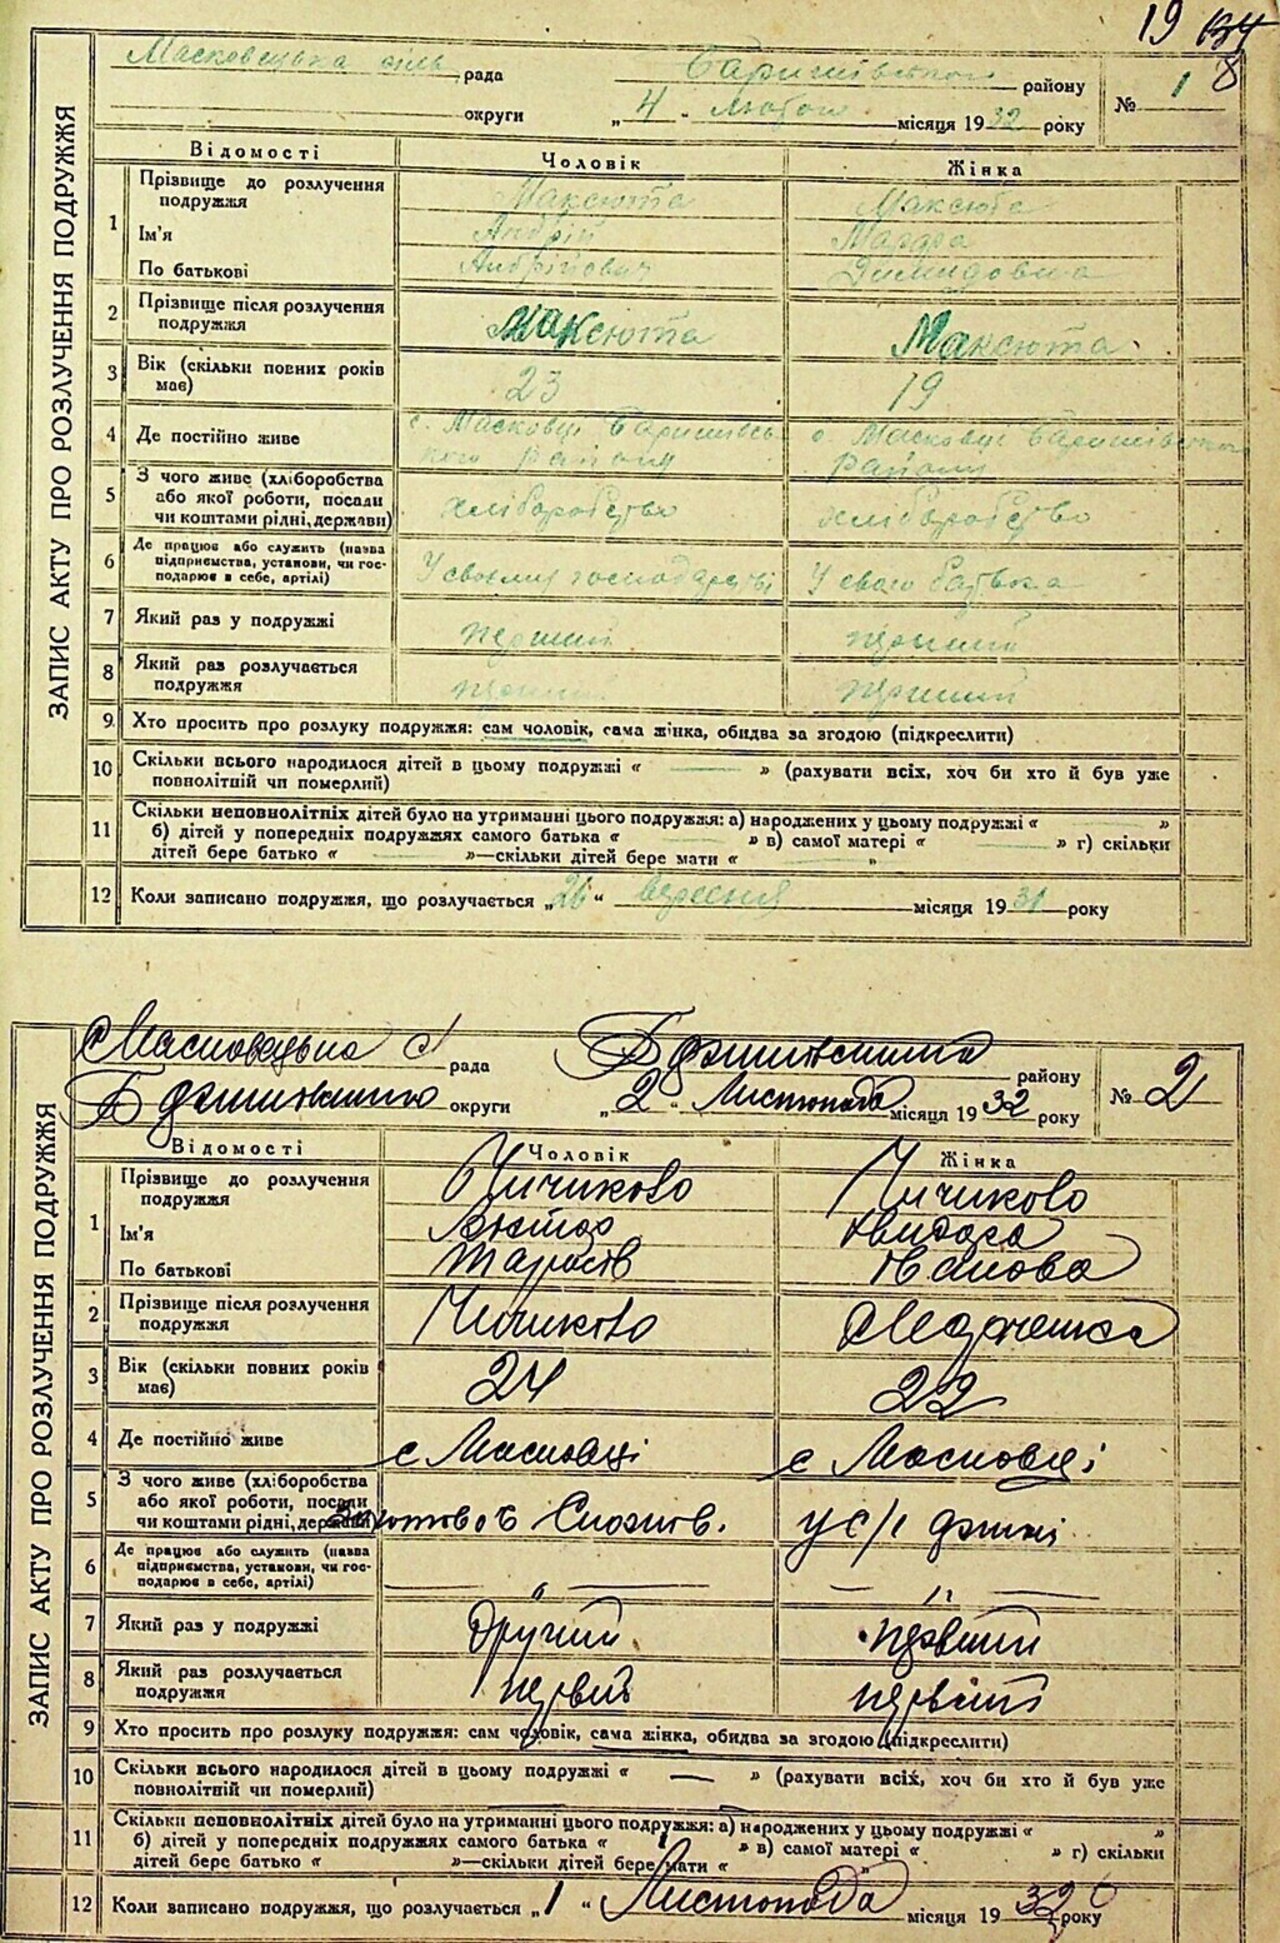 19 134
8
ЗАПИС АКТУ ПРО РОЗЛУЧЕННЯ ПОДРУЖЖЯ
Масковецька сіль рада Баришівського району № 1
округи „ 4 " лютого місяця 19 32 року
Відомості Чоловік Жінка
1 Прізвище до розлучення подружжя Максюта Максюта
Ім'я Андрій Марфа
По батькові Андрійович Димидовна
2 Прізвище після розлучення подружжя Максюта Максюта
3 Вік (скільки повних років має) 23 19
4 Де постійно живе с. Масковці Баришівсь- с. Масковці Баришівського
кого району району
5 З чого живе (хліборобства або якої роботи, посади чи коштами рідні, держави) хліборобство хліборобство
6 Де працює або служить (назва підприємства, установи, чи господарює в себе, артілі) У своєму господарстві У свого батька
7 Який раз у подружжі перший перший
8 Який раз розлучається подружжя перший перший
9 Хто просить про розлуку подружжя: сам чоловік, сама жінка, обидва за згодою (підкреслити)
10 Скільки всього народилося дітей в цьому подружжі « — » (рахувати всіх, хоч би хто й був уже
повнолітній чи померлий)
11 Скільки неповнолітніх дітей було на утриманні цього подружжя: а) народжених у цьому подружжі « »
б) дітей у попередніх подружжях самого батька « — » в) самої матері « — » г) скільки
дітей бере батько « — »—скільки дітей бере мати « — "
12 Коли записано подружжя, що розлучається „ 26 " вересня місяця 19 31 року
ЗАПИС АКТУ ПРО РОЗЛУЧЕННЯ ПОДРУЖЖЯ
Масковецька с/ рада району № 2
округи „ 2 " Листопада місяця 19 32 року
Відомості Чоловік Жінка
1 Прізвище до розлучення подружжя Чичиково Чичиково
Ім'я
По батькові Тарасів Іванова
2 Прізвище після розлучення подружжя Чичиково
3 Вік (скільки повних років має) 24 22
4 Де постійно живе с Масковці с Масковці
5 З чого живе (хліборобства або якої роботи, посади чи коштами рідні, держави) у с/г
6 Де працює або служить (назва підприємства, установи, чи господарює в себе, артілі) — " — — " —
7 Який раз у подружжі другий первий
8 Який раз розлучається подружжя первий первий
9 Хто просить про розлуку подружжя: сам чоловік, сама жінка, обидва за згодою (підкреслити)
10 Скільки всього народилося дітей в цьому подружжі « — » (рахувати всіх, хоч би хто й був уже
повнолітній чи померлий)
11 Скільки неповнолітніх дітей було на утриманні цього подружжя: а) народжених у цьому подружжі « »
б) дітей у попередніх подружжях самого батька « » в) самої матері « » г) скільки
дітей бере батько « »—скільки дітей бере мати « "
12 Коли записано подружжя, що розлучається „ 1 " Листопада місяця 19 32 року